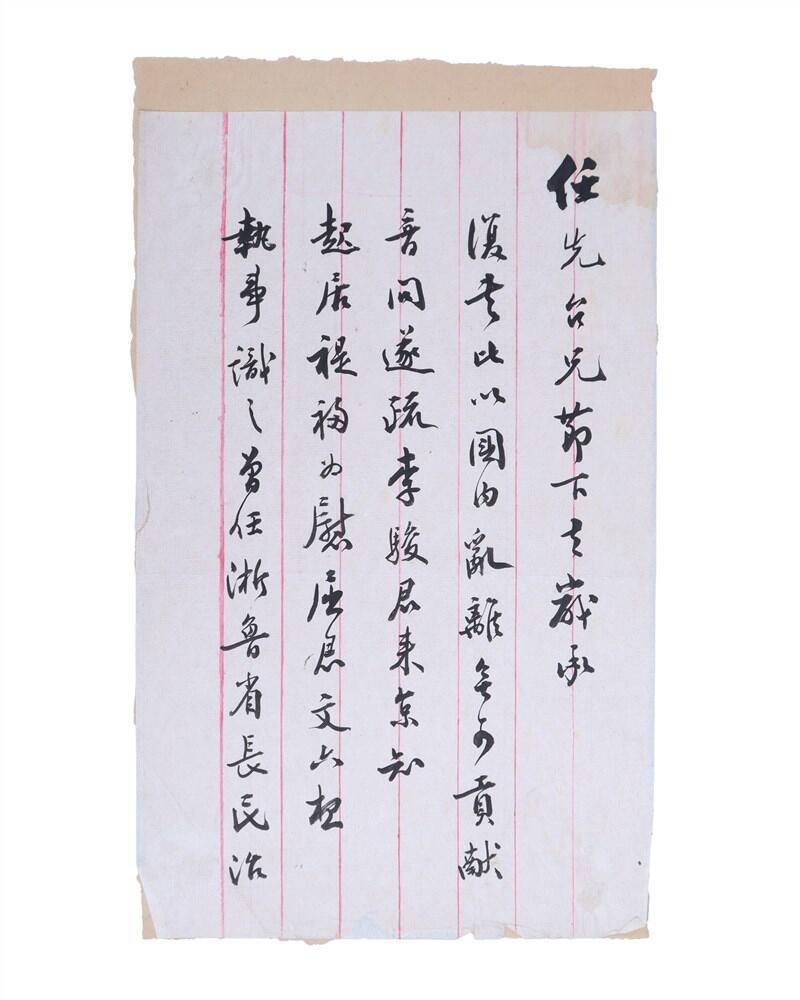 任先台兄節下去歲承
復書比以國內亂離無可貢獻
音問遂疏李駿君來京知
起居禔福為慰屈君文六想
執事識之曾任浙魯省長民治